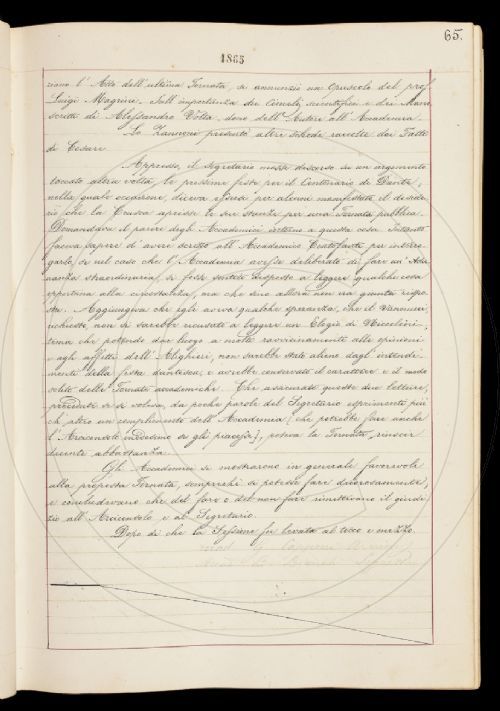 65.
1865
l'Atto dell'ultima Tornata, si annunziò un Opuscolo del prof.
Luigi Magrini. Sull'importanza dei Cimelj scientifici e dei Mano
scritti di Alessandro Volta. dono dell'Autore all'Accademia.
Lo Zannoni presentò altre schede ricavate dai Fatti
di Cesare
Appresso, il Segretario mosse discorso su un argomento
toccato altra volta, le prossime feste per il Centenario di Dante;
nella quale occasione, diceva essersi per alcuni manifestato il deside
rio che la Crusca aprisse le sue stanze per una Tornata pubblica.
Domandava il parere degli Accademici intorno a questa cosa. Intanto
faceva sapere d'avere scritto all'Accademico per interro
garlo, se nel caso che l'Accademia avesse deliberato di fare un'Adu
nanza straordinaria, si fosse sentito disposto a leggere qualche cosa
opportuna alla circostanza, ma che sino allora non era giunta rispo
sta. Aggiungeva che egli aveva qualche speranza, che il Vannucci,
richiesto, non si sarebbe ricusato a leggere un Elogio di Niccolini,
tema che potendo dar luogo a molti ravvicinamenti alle opinioni
e agli affetti dell'Alighieri, non sarebbe stato alieno dagl'intendi
menti della festa dantesca, e avrebbe conservato il carattere e il modo
solito delle Tornate accademiche. Che assicurate queste due letture,
precedute se si voleva, da poche parole del Segretario esprimenti più
ch'altro un complimento dell'Accademia [che potrebbe fare anche
l'Arciconsolo medesimo se gli piacesse], poteva la Tornata, riuscir
decente abbastanza.
Gli Accademici si mostrarono in generale favorevoli
alla proposta Tornata, semprechè si potesse fare decorosamente;
e concludevano che del fare o del non fare rimettevano il giudi
zio all'Arciconsolo e al Segretario.
Dopo di che la Sessione fu levata al tocco e mezzo.